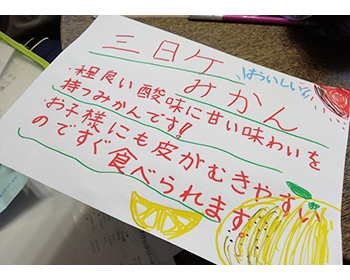 三日ケ
みかん
おいしい!!
程良い酸味に甘い味わいを
持つみかんです!!
お子様にも皮がむきやすい
のですぐ食べられます。